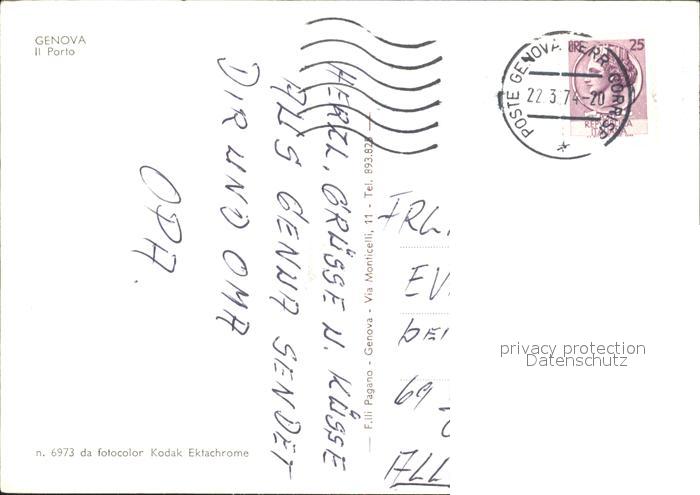 GENOVA
Il Porto
HERZL. GRÜSSE U. KÜSSE
AUS GENUA SENDET
DIR UND OMA
OPA.
n. 6973 da fotocolor Kodak Ektachrome
F.lli Pagano - Genova - Via Monticelli, 11 - Tel. 893.828
POSTE GENOVA FERR. CORRISP.
22.3.74-20
25
FRL.
EV
BEI
69
ALL
privacy protection
Datenschutz